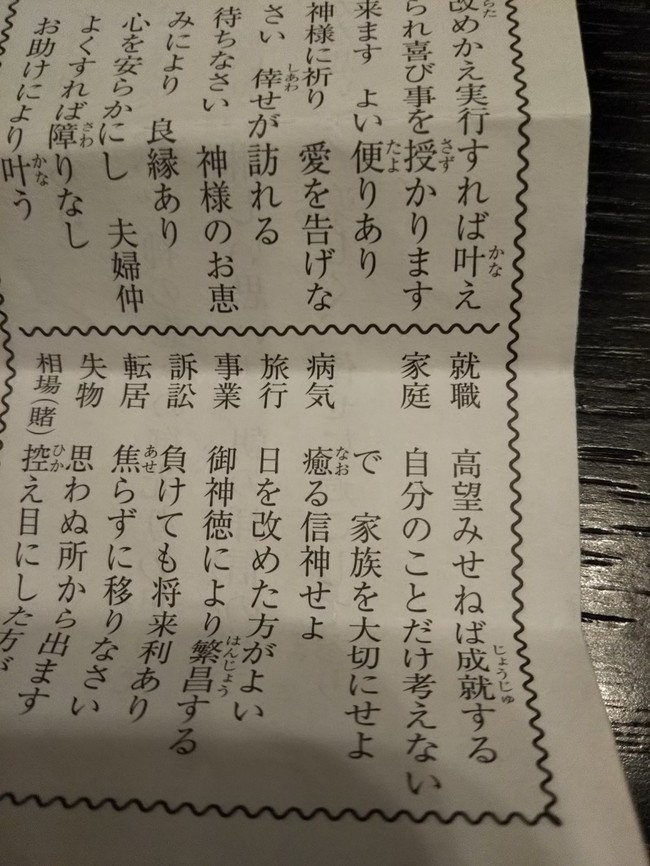 改めかえ実行すれば叶え
られ喜び事を授かります
来ます よい便りあり
神様に祈り 愛を告げな
さい 倖せが訪れる
待ちなさい 神様のお恵
みにより 良縁あり
心を安らかにし 夫婦仲
よくすれば障りなし
お助けにより叶う
就職 高望みせねば成就する
家庭 自分のことだけ考えない
で 家族を大切にせよ
病気 癒る信神せよ
旅行 日を改めた方がよい
事業 御神徳により繁昌する
訴訟 負けても将来利あり
転居 焦らずに移りなさい
失物 思わぬ所から出ます
相場(賭) 控え目にした方が